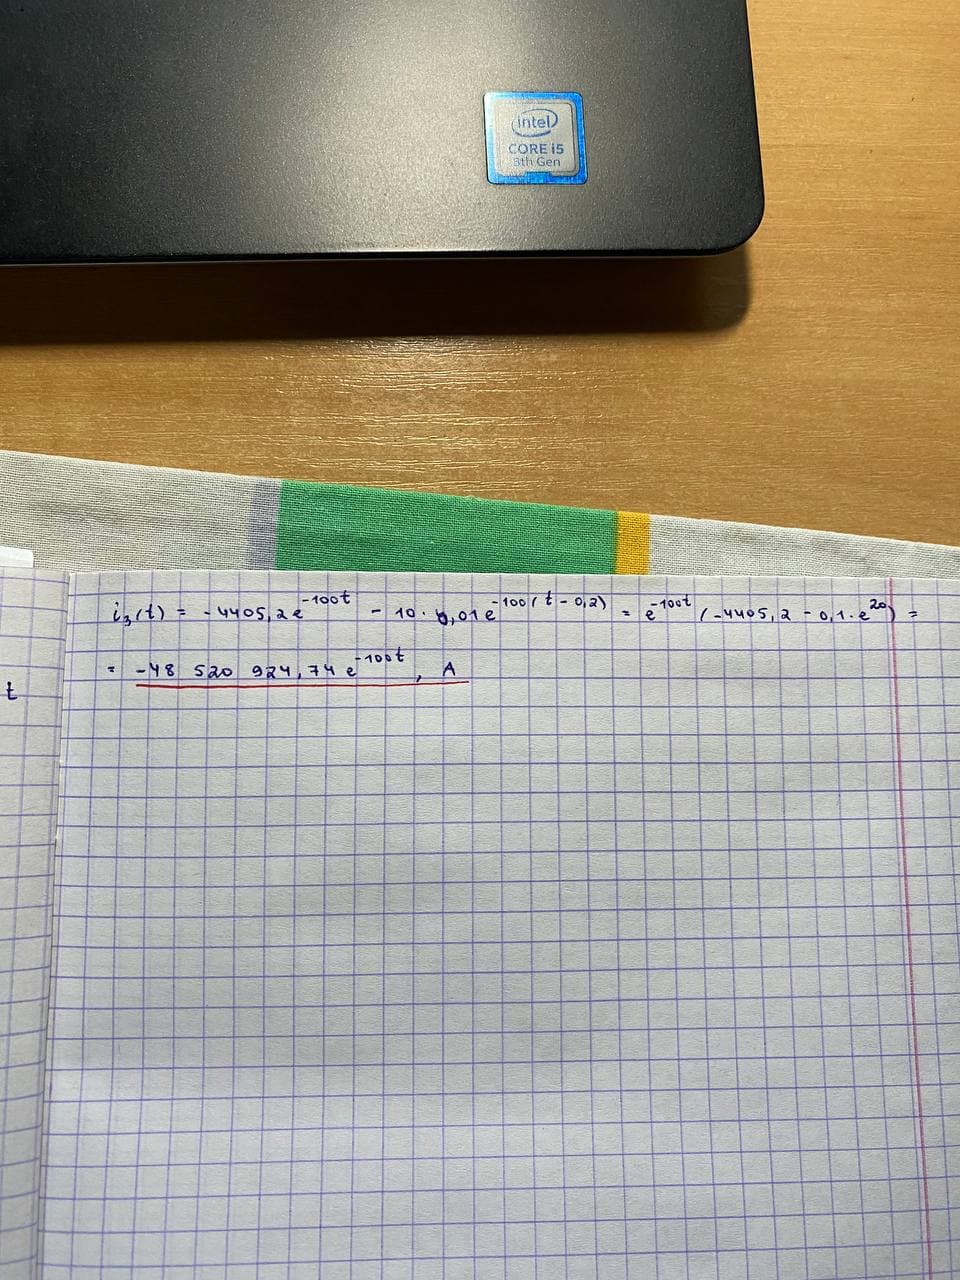 intel
CORE i5
8th Gen
i₃(t) = -4405,2e^{-100t} - 10 · 0,01e^{-100(t - 0,2)} = e^{-100t} (-4405,2 - 0,1 · e^{20}) =
= -48 520 924,74 e^{-100t}, A
t